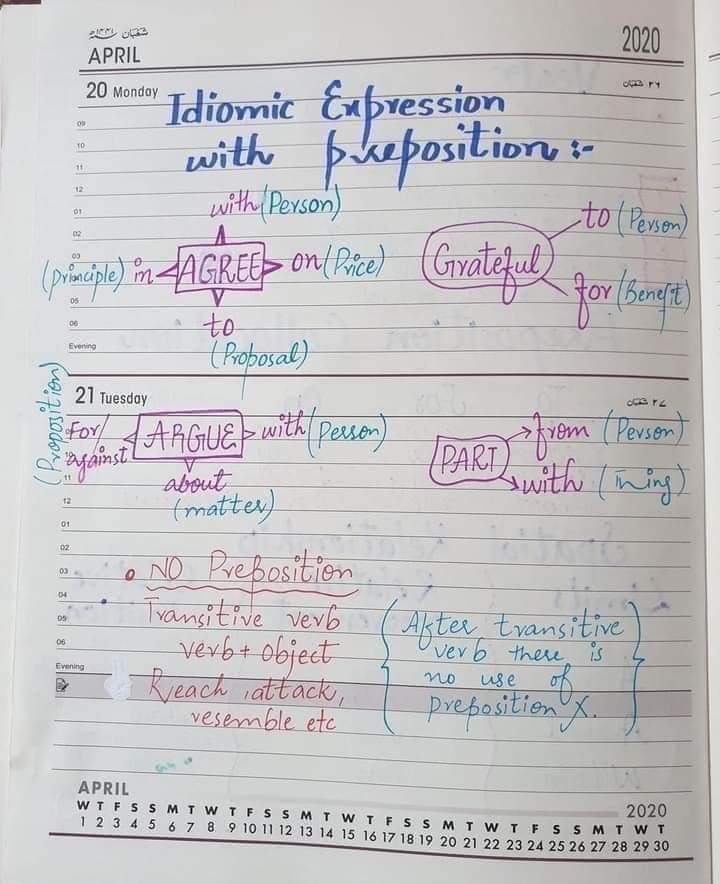 شعبان ١٤٤١ھ
APRIL 2020
20 Monday ٢٦ شعبان
Idiomic Expression
with preposition :-
with (Person)
(principle) in AGREE on (Price)
to
(Proposal)
Grateful
to (Person)
for (Benefit)
21 Tuesday ٢٧ شعبان
(Proposition)
For/
against
ARGUE with (Person)
about
(matter)
PART
from (Person)
with (Thing)
• NO Preposition
Transitive verb
verb + object
Reach, attack,
resemble etc
(After transitive
verb there is
no use of
preposition X.)
09
10
11
12
01
02
03
05
06
Evening
10
11
12
01
02
03
04
05
06
Evening
APRIL 2020
W T F S S M T W T F S S M T W T F S S M T W T F S S M T W T
1 2 3 4 5 6 7 8 9 10 11 12 13 14 15 16 17 18 19 20 21 22 23 24 25 26 27 28 29 30